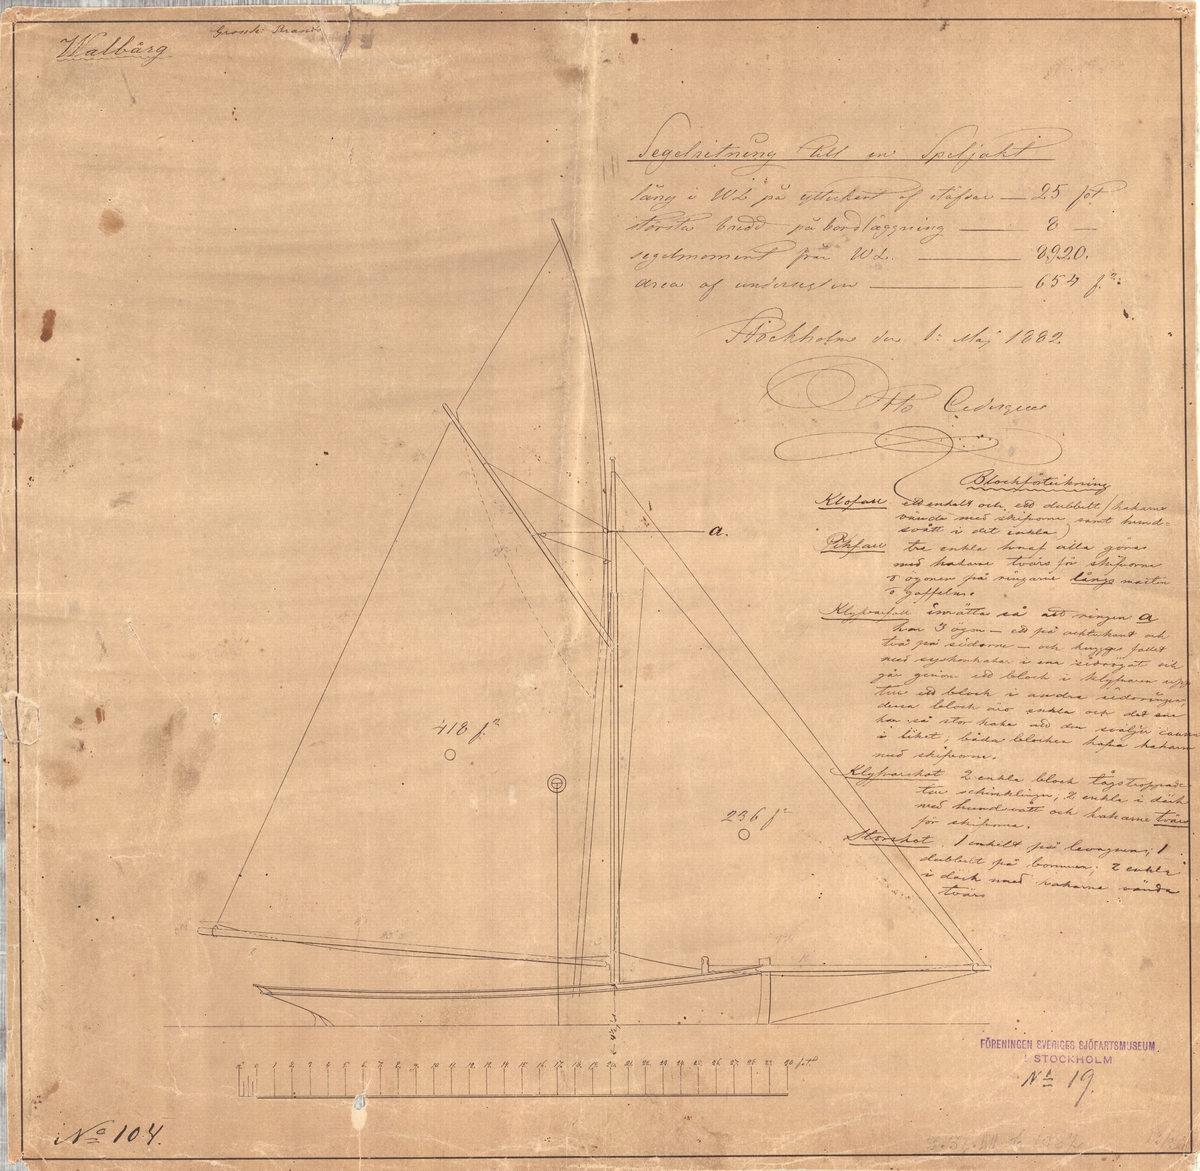 Walbårg
Segelritning till en Speljakt
läng i WL på ytterkant af stäfvar — 25 fot
största bredd på bordläggning — 8 —
segelmoment från WL — 8920.
area af underseglen — 654 f²:
Stockholm den 1: Maj 1882.
Otto Cedergren
Blockförteckning
Klofall ett enkelt och ett dubbelt (hakarne
vända med skifvorna samt hund-
svått i det enkla)
Pikfall tre enkla hvaraf alla göras
med hakarne tvärs för skifvorna
o ögonen på ringarne långs masten
o gaffeln.
Klyfvarfall inrättas så att ringen a
har 3 ögon — ett på akterkant och
två på sidorna — och hugges fallet
med systerhakar i ena sidoögat och
går genom ett block i klyfvaren
ett block i andra sidoringen,
dessa block äro enkla och det ena
har så stor hake att den sväljer
i liket; båda blocken hafva hakarne
med skifvorna.
Klyfvarskot 2 enkla block
2 enkla i däck
med hundsvått och hakarne tvärs
för skifvorna.
Storskot. 1 enkelt på levagnen; 1
dubbelt på bommen; 2 enkla
i däck med hakarne vända
tvärs
a.
418 f²
236 f²
0 1 2 3 4 5 6 7 8 9 10 11 12 13 14 15 16 17 18 19 20 21 22 23 24 25 26 27 28 29 30 fot
FÖRENINGEN SVERIGES SJÖFARTSMUSEUM
I STOCKHOLM
No 19.
No 104.